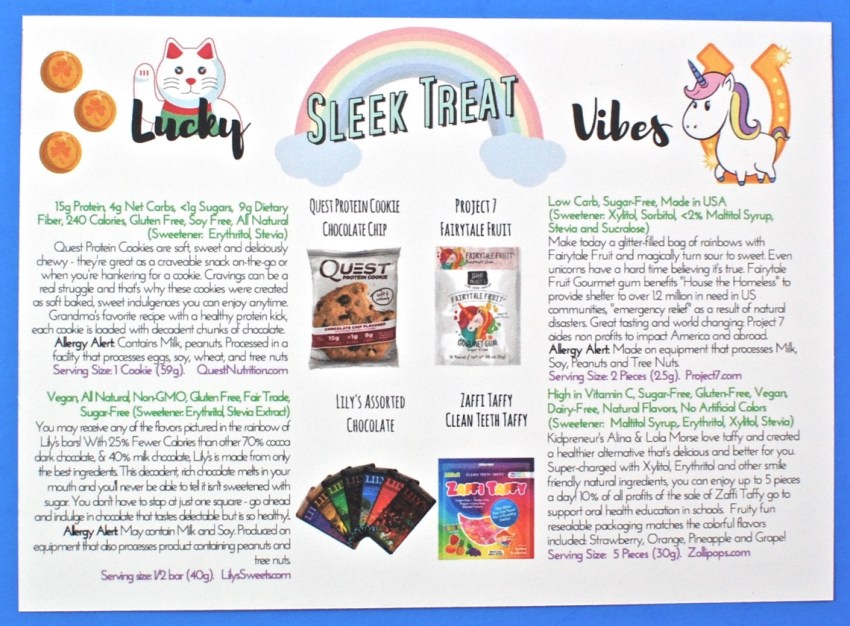 Lucky
SLEEK TREAT
Vibes
15g Protein, 4g Net Carbs, <1g Sugars, 9g Dietary
Fiber, 240 Calories, Gluten Free, Soy Free, All Natural
(Sweetener: Erythritol, Stevia)
Quest Protein Cookies are soft, sweet and deliciously
chewy - they're great as a craveable snack on-the-go or
when you're hankering for a cookie. Cravings can be a
real struggle and that's why these cookies were created
as soft baked, sweet indulgences you can enjoy anytime.
Grandma's favorite recipe with a healthy protein kick,
each cookie is loaded with decadent chunks of chocolate.
Allergy Alert: Contains Milk, peanuts. Processed in a
facility that processes eggs, soy, wheat, and tree nuts
Serving Size: 1 Cookie (59g). QuestNutrition.com
QUEST PROTEIN COOKIE
CHOCOLATE CHIP
QUEST
PROTEIN COOKIE
CHOCOLATE CHIP FLAVORED
15g <1g 9g
PROJECT 7
FAIRYTALE FRUIT
FAIRYTALE FRUIT
FAIRYTALE FRUIT
GOURMET GUM
Low Carb, Sugar-Free, Made in USA
(Sweetener: Xylitol, Sorbitol, <2% Maltitol Syrup,
Stevia and Sucralose)
Make today a glitter-filled bag of rainbows with
Fairytale Fruit and magically turn sour to sweet. Even
unicorns have a hard time believing it's true. Fairytale
Fruit Gourmet gum benefits "House the Homeless" to
provide shelter to over 1.2 million in need in US
communities, "emergency relief" as a result of natural
disasters. Great tasting and world changing: Project 7
aides non profits to impact America and abroad.
Allergy Alert: Made on equipment that processes Milk,
Soy, Peanuts and Tree Nuts.
Serving Size: 2 Pieces (2.5g). Project7.com
Vegan, All Natural, Non-GMO, Gluten Free, Fair Trade,
Sugar-Free (Sweetener: Erythritol, Stevia Extract)
You may receive any of the flavors pictured in the rainbow of
Lily's bars! With 25% Fewer Calories than other 70% cocoa
dark chocolate, & 40% milk chocolate, Lily's is made from only
the best ingredients. This decadent, rich chocolate melts in your
mouth and you'll never be able to tell it isn't sweetened with
sugar. You don't have to stop at just one square - go ahead
and indulge in chocolate that tastes delectable but is so healthy!.
Allergy Alert: May contain Milk and Soy. Produced on
equipment that also processes product containing peanuts and
tree nuts.
Serving size: 1/2 bar (40g). LilysSweets.com
LILY'S ASSORTED
CHOCOLATE
ZAFFI TAFFY
CLEAN TEETH TAFFY
Zaffi Taffy
High in Vitamin C, Sugar-Free, Gluten-Free, Vegan,
Dairy-Free, Natural Flavors, No Artificial Colors
(Sweetener: Maltitol Syrup, Erythritol, Xylitol, Stevia)
Kidpreneur's Alina & Lola Morse love taffy and created
a healthier alternative that's delicious and better for you.
Super-charged with Xylitol, Erythritol and other smile
friendly natural ingredients, you can enjoy up to 5 pieces
a day! 10% of all profits of the sale of Zaffi Taffy go to
support oral health education in schools. Fruity fun
resealable packaging matches the colorful flavors
included: Strawberry, Orange, Pineapple and Grape!
Serving Size: 5 Pieces (30g). Zollipops.com